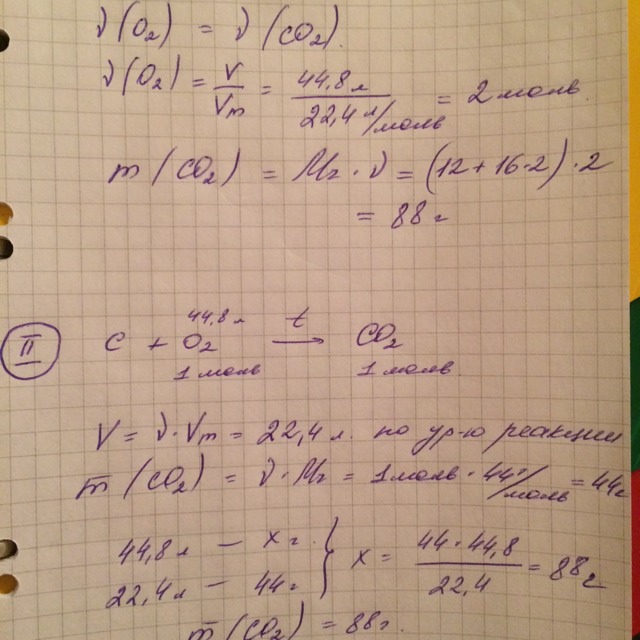 ν(O₂) = ν(CO₂).
ν(O₂) = V/Vm = 44,8 л / 22,4 л/моль = 2 моль.
m(CO₂) = Mr · ν = (12 + 16·2) · 2
= 88 г
44,8 л
II C + O₂ t→ CO₂
1 моль 1 моль
V = ν·Vm = 22,4 л. по ур-ю реакции
m(CO₂) = ν·Mr = 1 моль · 44 г/моль = 44 г
44,8 л — x г. } x = 44·44,8 / 22,4 = 88 г
22,4 л — 44 г
m(CO₂) = 88 г.